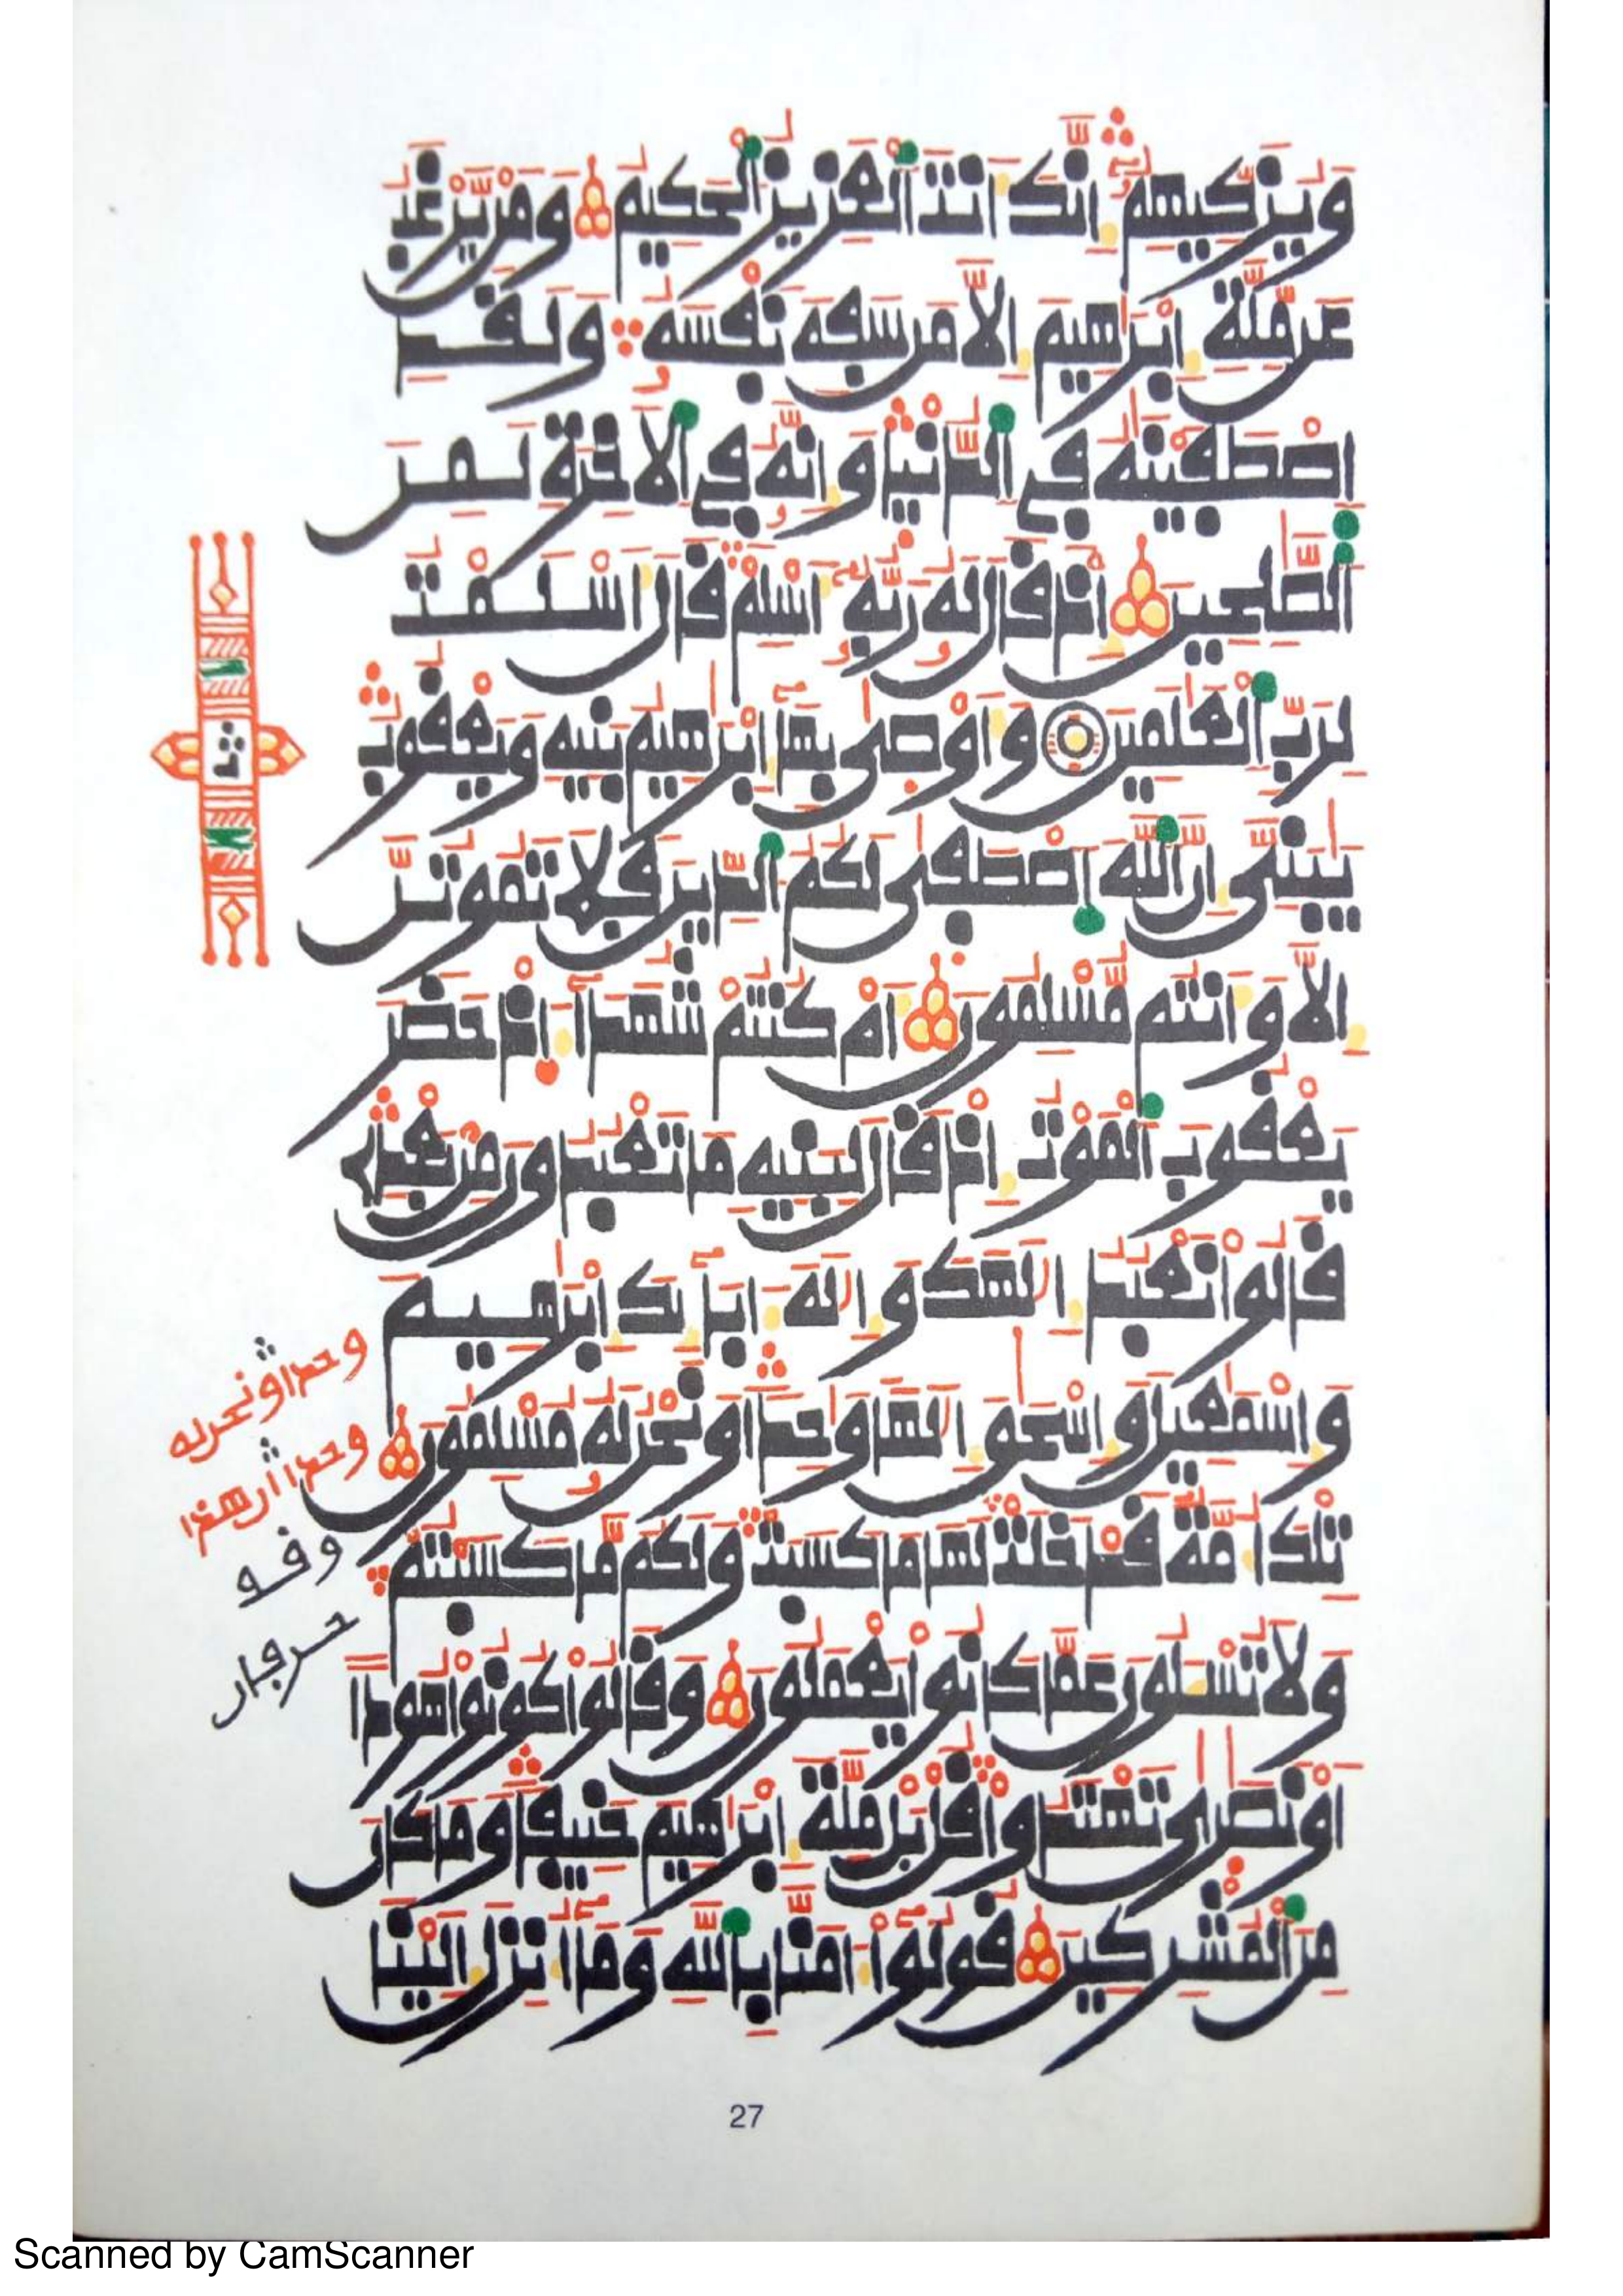 وَيُزَكِّيهِمُۥٓ إِنَّكَ أَنتَ ٱلْعَزِيزُ ٱلْحَكِيمُ وَمَنْ يَّرْغَبُ
عَن مِّلَّةِ إِبْرَٰهِيمَ إِلَّا مَن سَفِهَ نَفْسَهُۥ وَلَقَدِ
اِصْطَفَيْنَٰهُ فِي ٱلدُّنْيَا وَإِنَّهُۥ فِي ٱلْأَخِرَةِ لَمِنَ
ٱلصَّٰلِحِينَ إِذْ قَالَ لَهُۥ رَبُّهُۥٓ أَسْلِمْ قَالَ أَسْلَمْتُ
لِرَبِّ ٱلْعَٰلَمِينَ وَأَوْصَىٰ بِهَآ إِبْرَٰهِيمُ بَنِيهِ وَيَعْقُوبُ
يَٰبَنِيَّ إِنَّ ٱللَّهَ ٱصْطَفَىٰ لَكُمُ ٱلدِّينَ فَلَا تَمُوتُنَّ
إِلَّا وَأَنتُم مُّسْلِمُونَ أَمْ كُنتُمْ شُهَدَآءَ إِذْ حَضَرَ
يَعْقُوبَ ٱلْمَوْتُ إِذْ قَالَ لِبَنِيهِ مَا تَعْبُدُونَ مِنْ بَعْدِي
قَالُوا نَعْبُدُ إِلَٰهَكَ وَإِلَٰهَ ءَابَآئِكَ إِبْرَٰهِيمَ
وَإِسْمَٰعِيلَ وَإِسْحَٰقَ إِلَٰهًا وَٰحِدًا وَنَحْنُ لَهُۥ مُسْلِمُونَ
تِلْكَ أُمَّةٌ قَدْ خَلَتْ لَهَا مَا كَسَبَتْ وَلَكُم مَّا كَسَبْتُمْ
وَلَا تُسْـَٔلُونَ عَمَّا كَانُوا يَعْمَلُونَ وَقَالُوا كُونُوا هُودًا
أَوْ نَصَٰرَىٰ تَهْتَدُوا قُلْ بَلْ مِلَّةَ إِبْرَٰهِيمَ حَنِيفًا وَمَا كَانَ
مِنَ ٱلْمُشْرِكِينَ قُولُوٓا ءَامَنَّا بِٱللَّهِ وَمَآ أُنزِلَ إِلَيْنَا
ثمن
وحدا ونحن له
27
Scanned by CamScanner